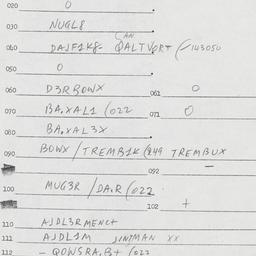 020 0
030 NUGL8
040 DAJF1K8= QALTVORT (-143050
CAN
050 0
060 D3RBOWX 061 0
070 BA,XAL1 (022 071 0
080 BA,XAL3X
090 BOWX/TREMB1K (249 TREMBUX
092 -
100 MUG3R/DA,R (022
102 +
110 AJDL3RMENCT
111 AJDL1M JINTMAN XX
112 - QOWSRA,B+ (022